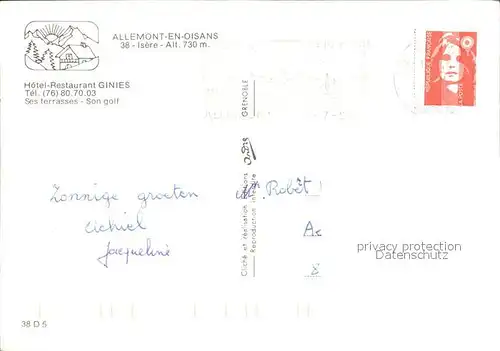 ALLEMONT-EN-OISANS
38 - Isère - Alt. 730 m.
Hôtel-Restaurant GINIES
Tél. (76) 80.70.03
Ses terrasses - Son golf
RÉPUBLIQUE FRANÇAISE
GRENOBLE
Cliché et réalisation Éditions
Reproduction interdite
Zonnige groeten
Jacqueline
Robêt
privacy protection
Datenschutz
38 D 5